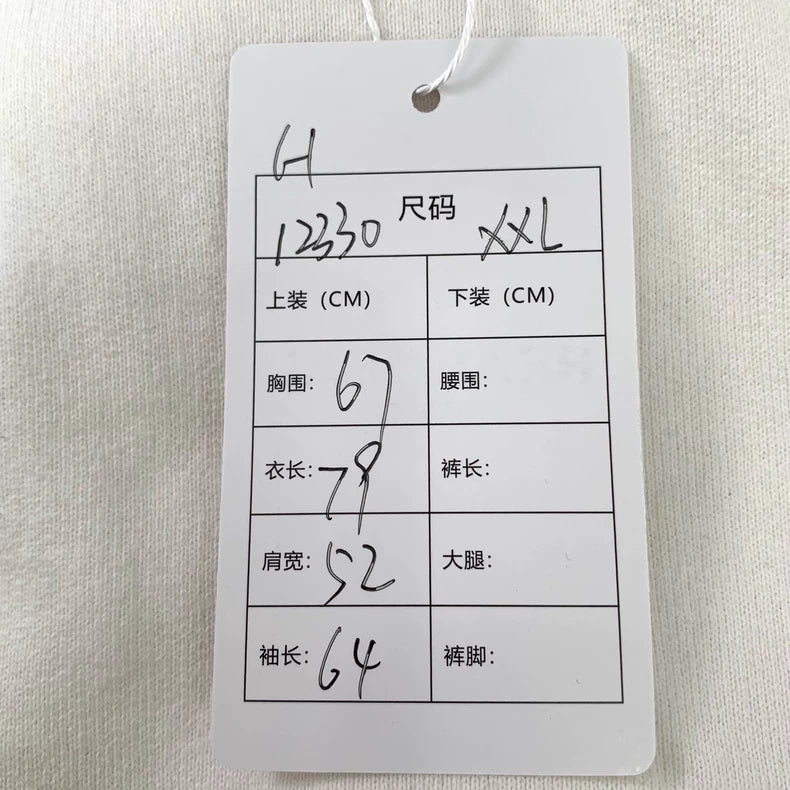 H
尺码
12330 XXL
上装（CM） 下装（CM）
胸围： 67 腰围：
衣长： 79 裤长：
肩宽： 52 大腿：
袖长： 64 裤脚：